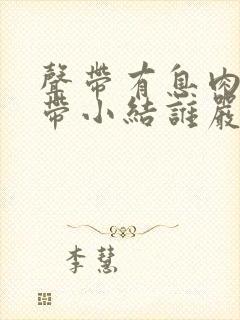 聲帶有息肉
帶小結誰嚴
李慧